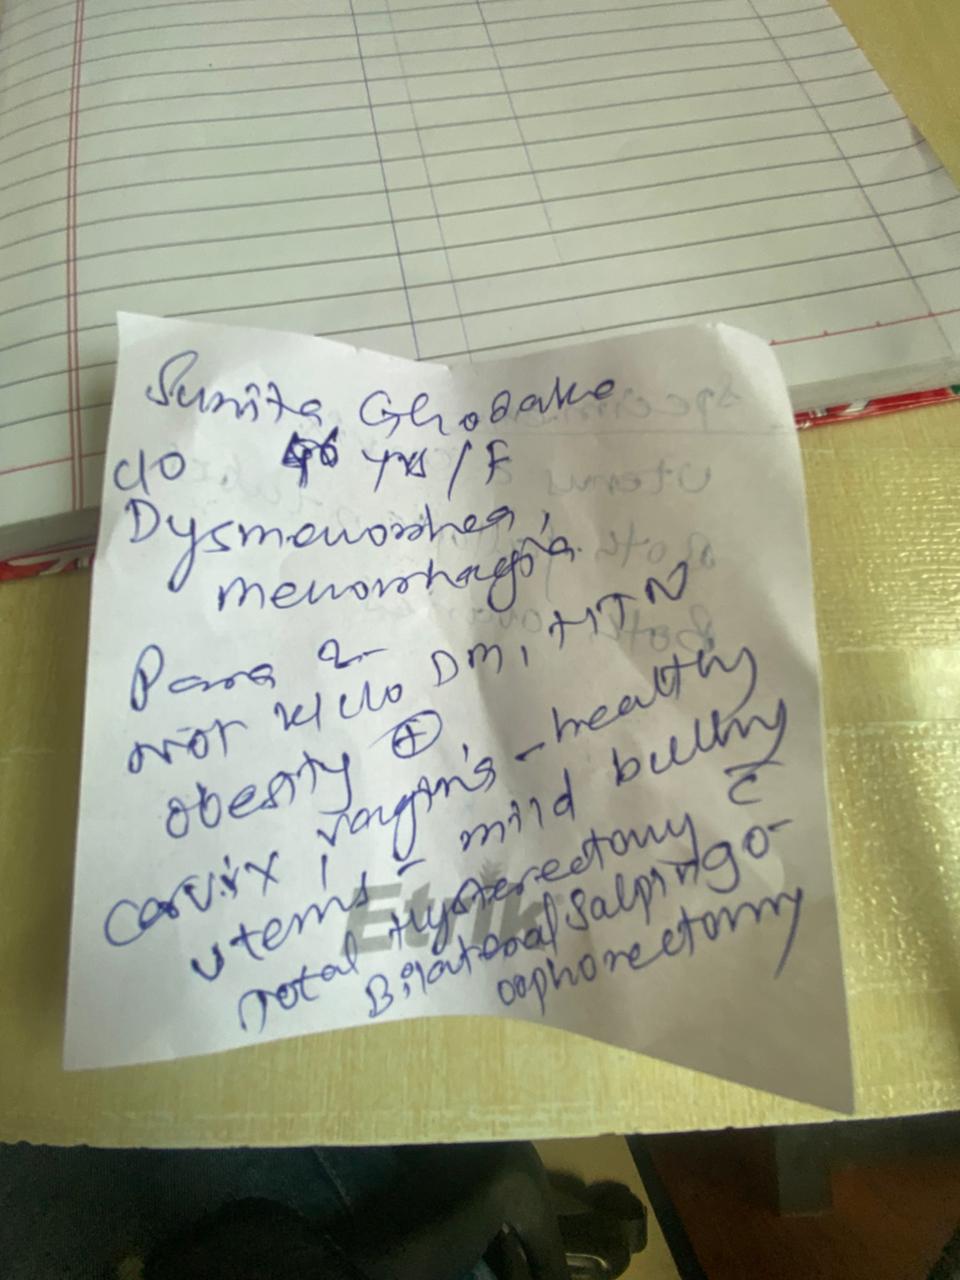 Sunita Ghodake
c/o yrs/F
Dysmenorrhea,
menorrhagia.
Para 2
not k/c/o DM, HTN
obesity ⊕
cervix, vagina - healthy
uterus - mild bulky
Total Hysterectomy c̄
Bilateral Salpingo-
oophorectomy
Etrik